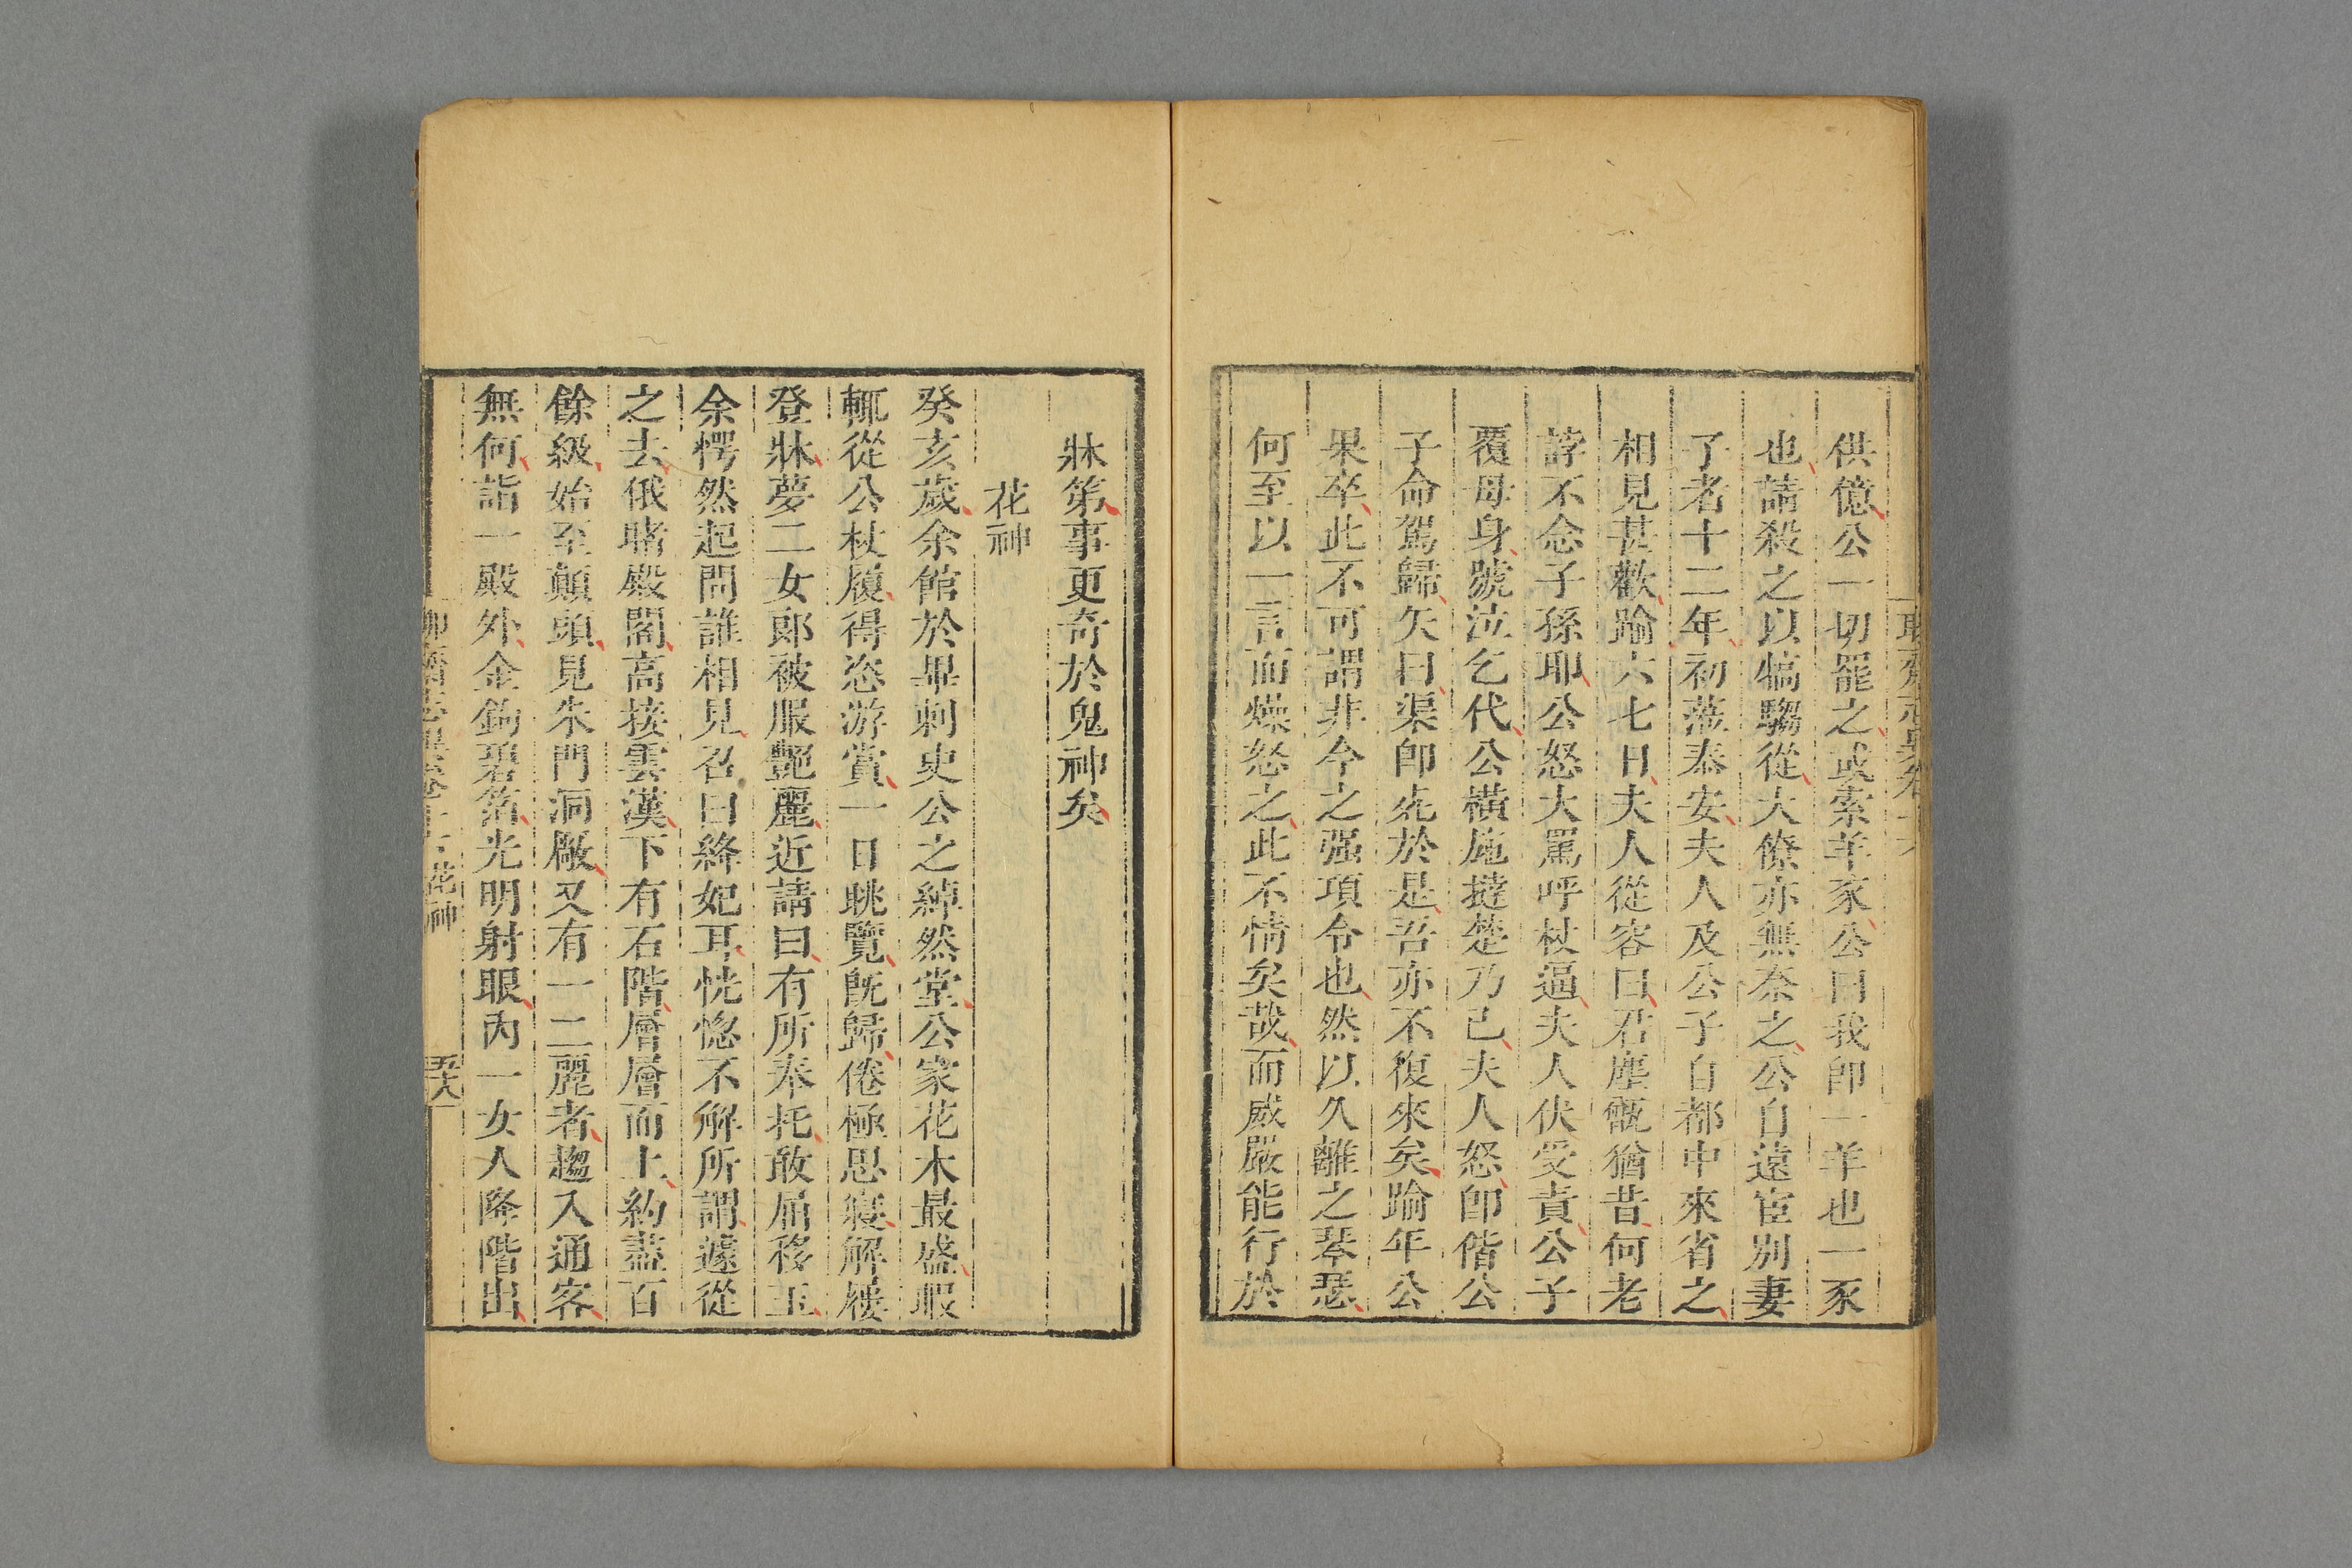 供億公一切罷之或索羊豕公曰我卽一羊也一豕
也請殺之以犒騶從大僚亦無奈之公自遠宦别妻
子者十二年初蒞泰安夫人及公子自都中來省之
相見甚歡踰六七日夫人從容曰君塵甑猶昔何老
誖不念子孫耶公怒大罵呼杖逼夫人伏受責公子
覆母身號泣乞代公橫施撻楚乃已夫人怒卽偕公
子命駕歸矢曰渠卽死於是吾亦不復來矣踰年公
果卒此不可謂非今之强項令也然以久離之琴瑟
何至以一言而燥怒之此不情矣哉而威嚴能行於
牀笫事更奇於鬼神矣
花神
癸亥歲余館於畢刺史公之綽然堂公家花木最盛暇
輒從公杖履得恣游賞一日眺覽旣歸倦極思寢解屨
登牀夢二女郎被服艷麗近請曰有所奉托敢屈移玉
余愕然起問誰相見召曰絳妃耳恍惚不解所謂遽從
之去俄睹殿閣高接雲漢下有石階層層而上約盡百
餘級始至顛頭見朱門洞敞又有一二麗者趨入通客
無何詣一殿外金鉤碧箔光明射眼內一女人降階出
花神
五十八